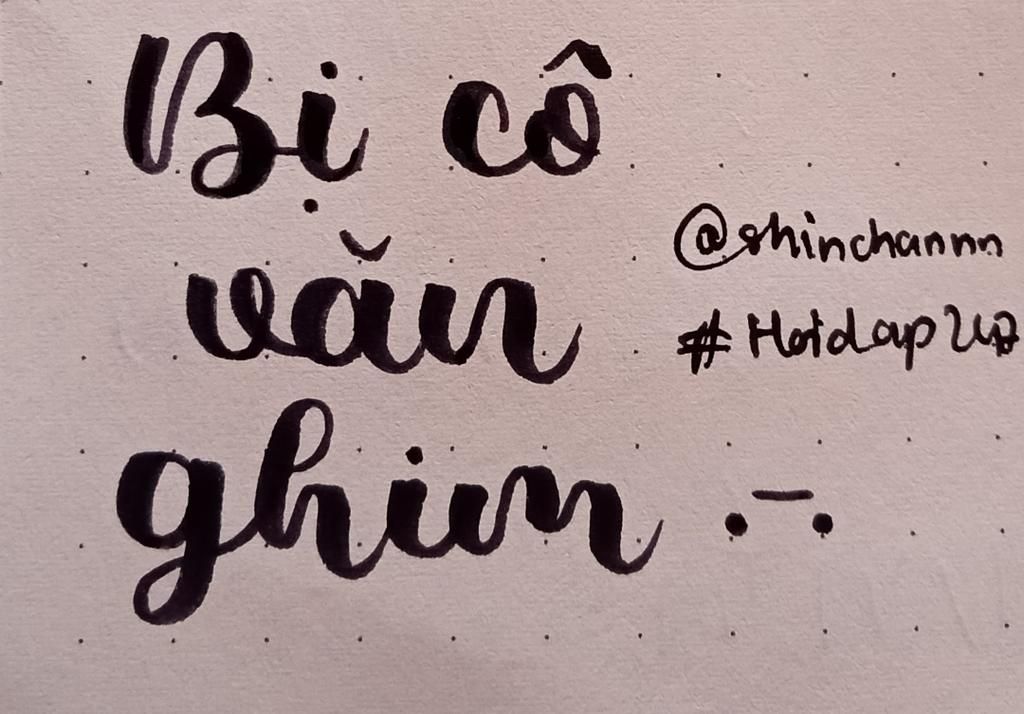 Bị cô
văn
ghim .-.
@shinchannn
#Hoidap247